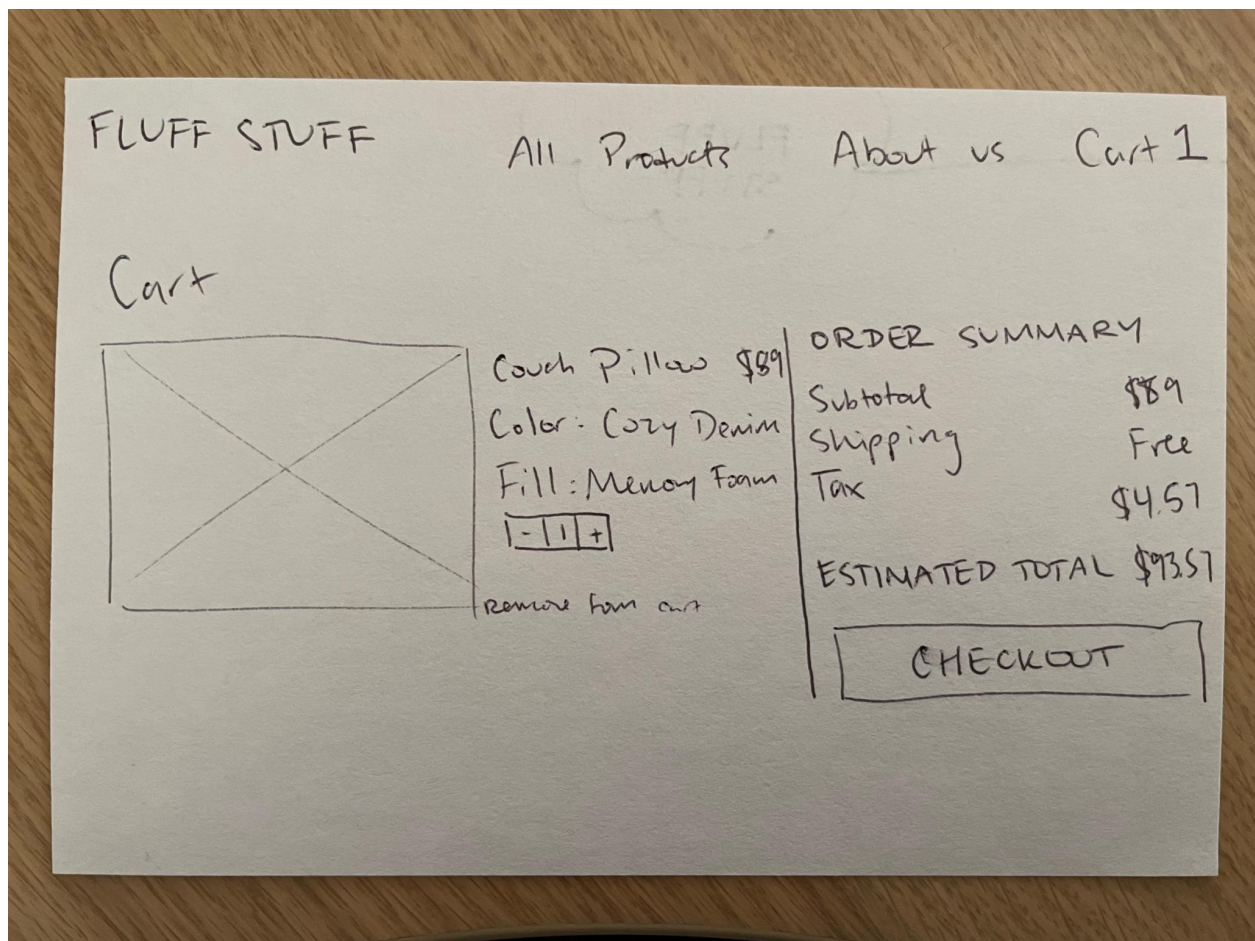 FLUFF STUFF
All Products
About us
Cart 1
Cart
Couch Pillow $89
Color: Cozy Denim
Fill: Memory Foam
- 1 +
Remove from cart
ORDER SUMMARY
Subtotal $89
Shipping Free
Tax $4.57
ESTIMATED TOTAL $93.57
CHECKOUT